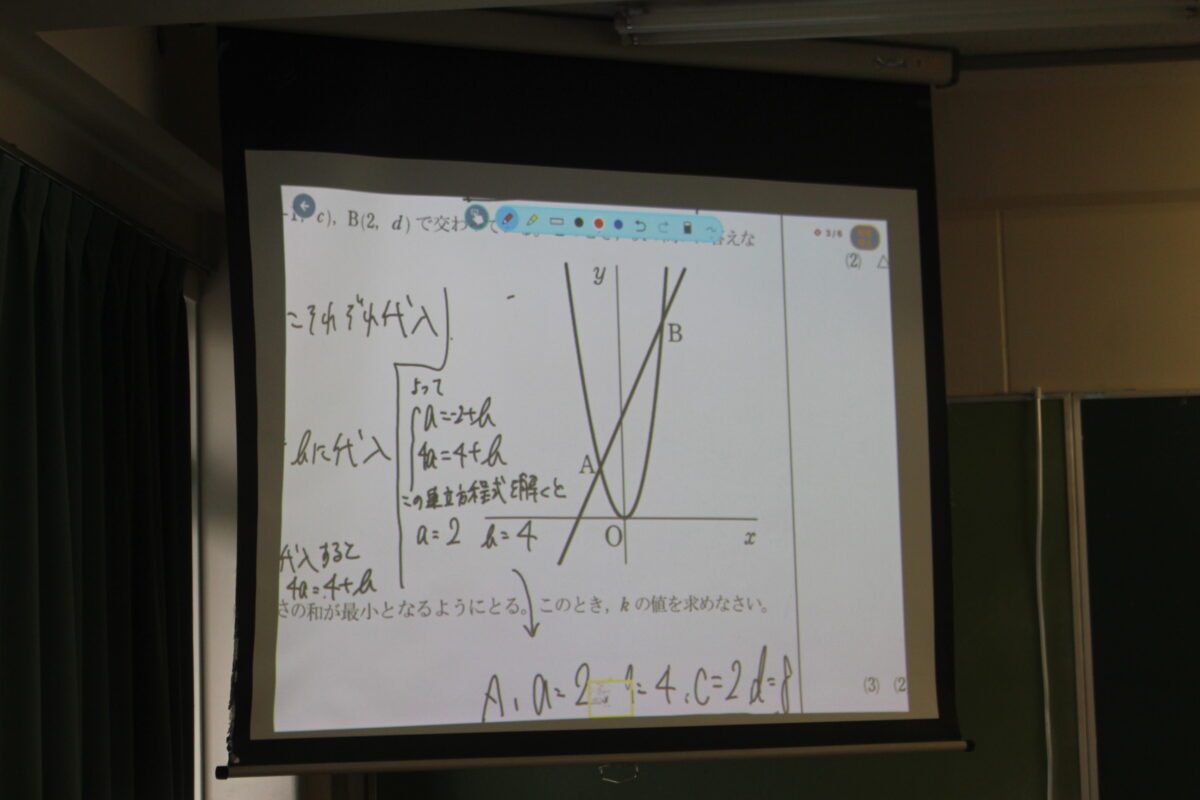 -1, c), B(2, d) で交わ
答えな
3/6
(2) △
y
B
A
O
x
にそれぞれ代入
よって
a=-2+b
4a=4+b
この連立方程式を解くと
a=2 b=4
bに代入
代入すると
4a=4+b
さの和が最小となるようにとる。このとき, kの値を求めなさい。
A, a=2 b=4, c=2 d=8
(3) (2